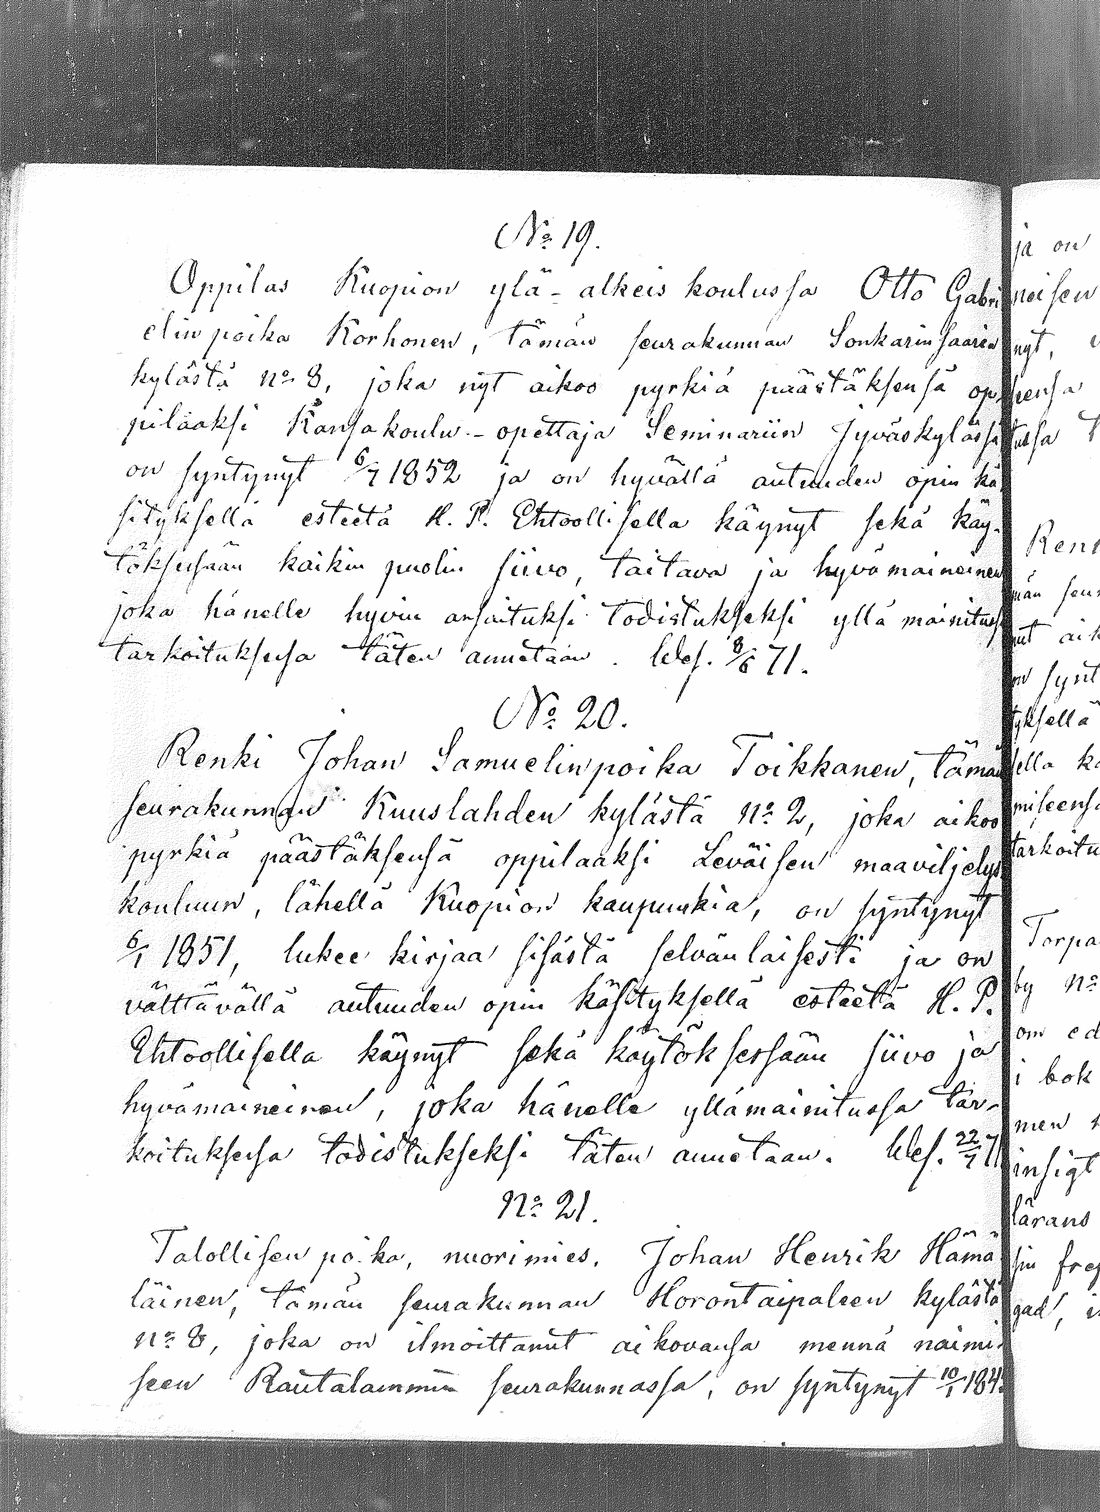 No 19.
Oppilas Kuopion ylä-alkeis koulussa Otto Gabri
elin poika Korhonen, tämän seurakunnan Sonkarinsaaren
kylästä no 8, joka nyt aikoo pyrkiä päästäksensä op-
pilaaksi Kansakoulu-opettaja Seminariin Jyväskylässä
on syntynyt 6/7 1852 ja on hyvällä autuuden opin kä
sityksellä esteetä H. P. Ehtoollisella käynyt sekä käy-
töksessään kaikin puolin siivo, taitava ja hyvämaineinen
joka hänelle hyvin ansaituksi todistukseksi yllä mainitussa
tarkoituksessa täten annetaan. Wes. 8/6 71.
No 20.
Renki Johan Samuelinpoika Toikkanen, tämän
seurakunnan Kuuslahden kylästä no 2, joka aikoo
pyrkiä päästäksensä oppilaaksi Leväisen maaviljelys
kouluun, lähellä Kuopion kaupunkia, on syntynyt
6/1 1851, lukee kirjaa sisästä selvänlaisesti ja on
välttävällä autuuden opin käsityksellä esteetä H. P.
Ehtoollisella käynyt sekä käytöksessään siivo ja
hyvämaineinen, joka hänelle yllämainitussa tar-
koituksessa todistukseksi täten annetaan. Wes. 22/7 71
No 21.
Talollisen poika, nuorimies, Johan Henrik Hämä
läinen, tämän seurakunnan Horontaipaleen kylästä
no 8, joka on ilmoittanut aikovansa mennä naimi-
seen Rautalammin seurakunnassa, on syntynyt 10/1 184
ja on
neisen
nyt,
sensa
tussa
Renk
män seur
nut aik
on synt
tyksellä
sella kä
miseensa
tarkoitu
Torpa
by no
om ed
i bok
men
insigt
lärans
sin frej
gad, i